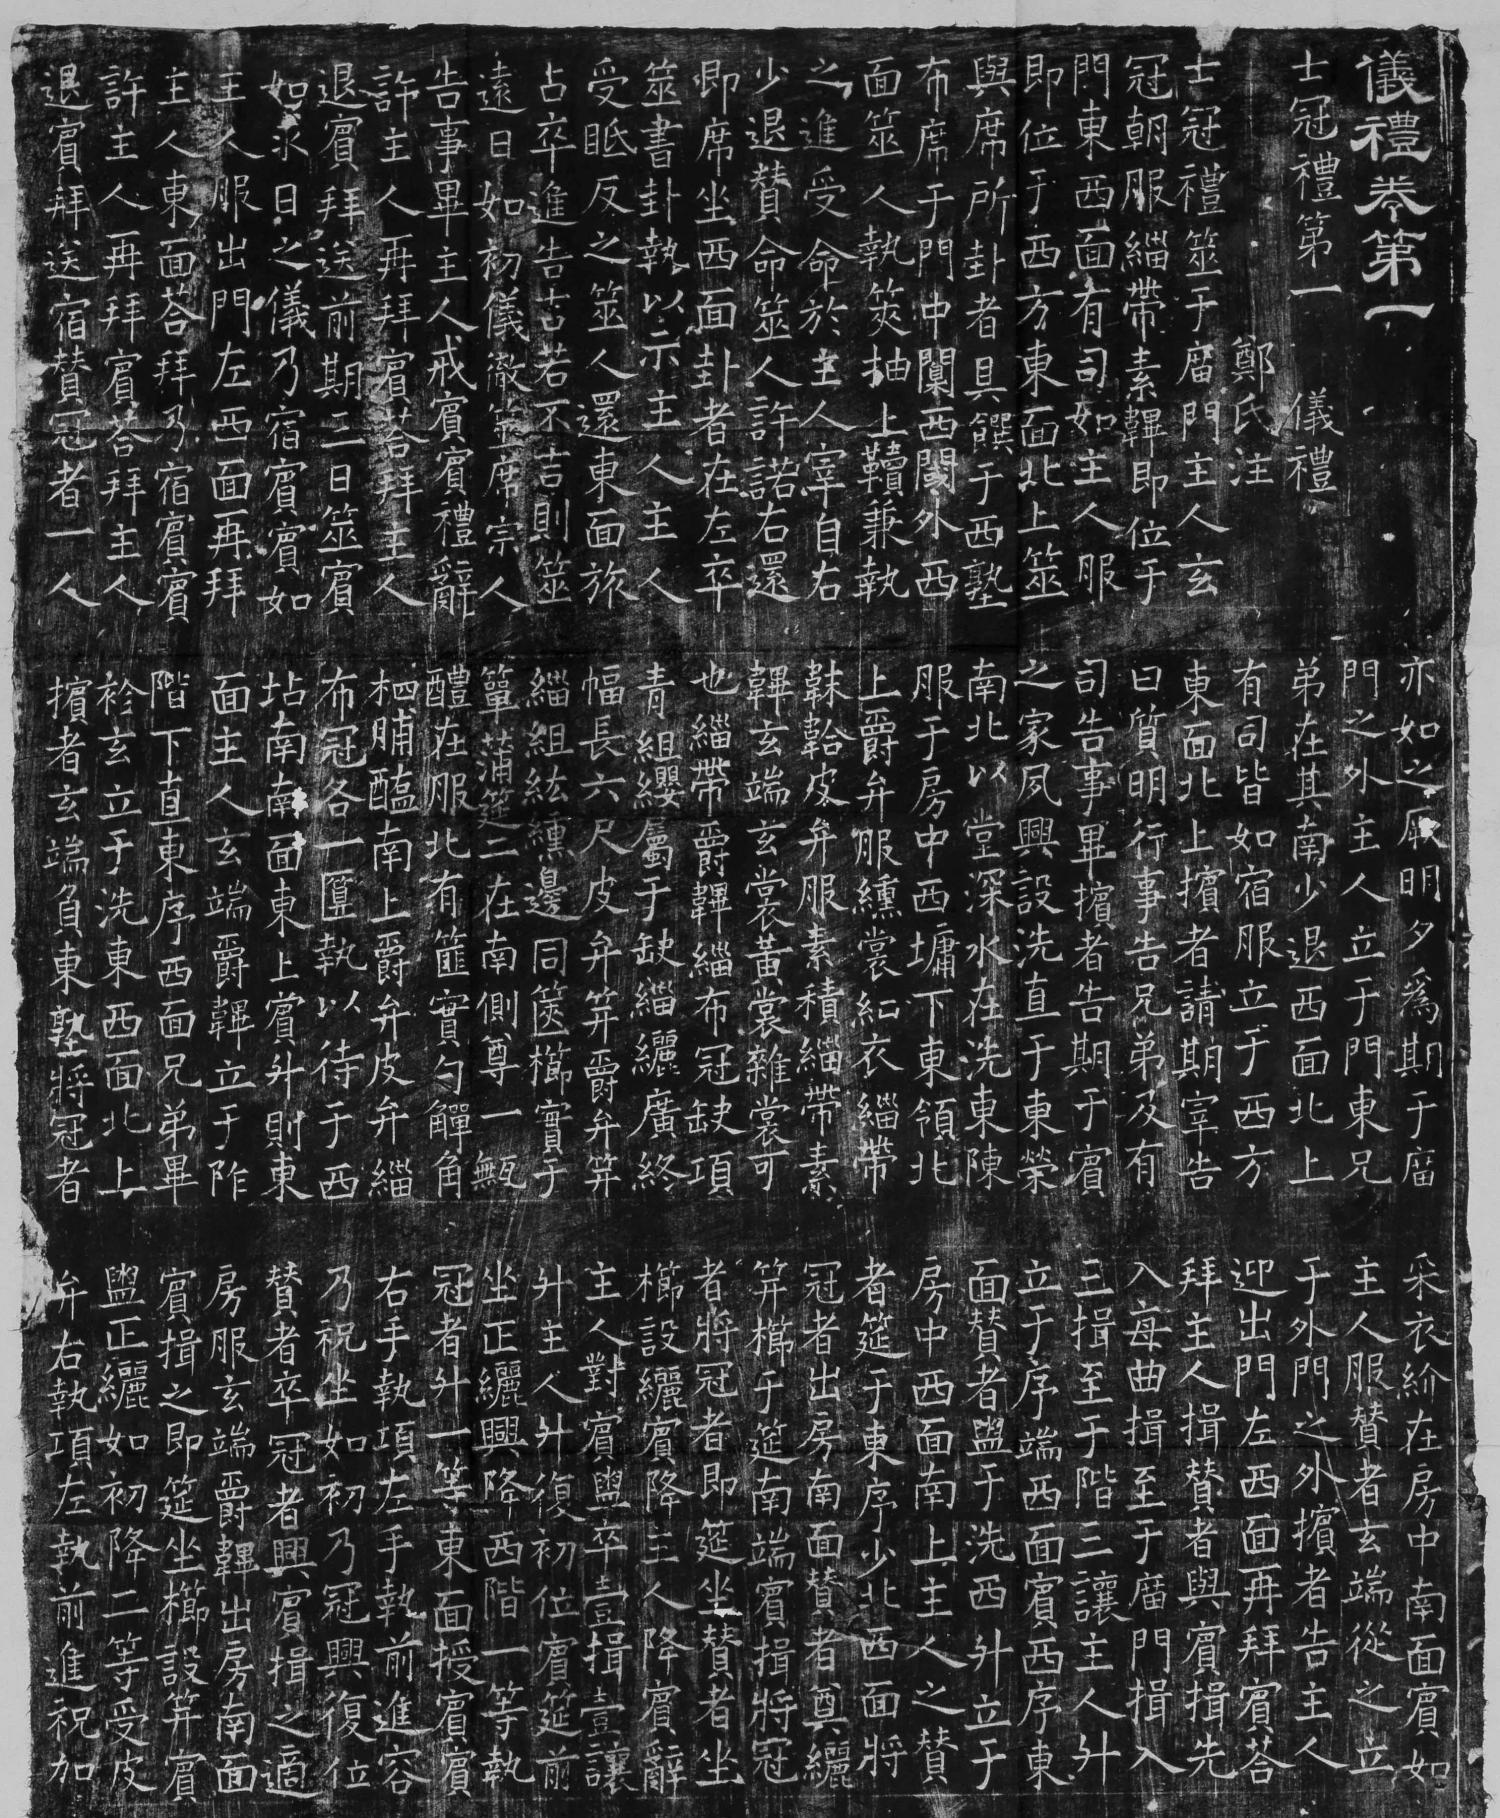 儀禮卷第一
士冠禮第一 儀禮
鄭氏注
士冠禮筮于庿門主人玄
冠朝服緇帶素韠即位于
門東西面有司如主人服
即位于西方東面北上筮
與席所卦者具饌于西塾
布席于門中闑西閾外西
面筮人執筴抽上韇兼執
之進受命於主人宰自右
少退贊命筮人許諾右還
即席坐西面卦者在左卒
筮書卦執以示主人主人
受眡反之筮人還東面旅
占卒進告吉若不吉則筮
遠日如初儀徹筮席宗人
告事畢主人戒賓賓禮辭
許主人再拜賓荅拜主人
退賓拜送前期三日筮賓
如求日之儀乃宿賓賓如
主人服出門左西面再拜
主人東面荅拜乃宿賓賓
許主人再拜賓荅拜主人
退賓拜送宿贊冠者一人
亦如之厥明夕爲期于庿
門之外主人立于門東兄
弟在其南少退西面北上
有司皆如宿服立于西方
東面北上擯者請期宰告
曰質明行事告兄弟及有
司告事畢擯者告期于賓
之家夙興設洗直于東榮
南北以堂深水在洗東陳
服于房中西墉下東領北
上爵弁服纁裳紂衣緇帶
韎韐皮弁服素積緇帶素
韠玄端玄裳黃裳雜裳可
也緇帶爵韠緇布冠缺項
青組纓屬于缺緇纚廣終
幅長六尺皮弁笄爵弁笄
緇組紘纁邊同篋櫛實于
簞蒲筵二在南側尊一甒
醴在服北有篚實勺觶角
柶脯醢南上爵弁皮弁緇
布冠各一匴執以待于西
坫南南面東上賓升則東
面主人玄端爵韠立于阼
階下直東序西面兄弟畢
袗玄立于洗東西面北上
擯者玄端負東塾將冠者
采衣紒在房中南面賓如
主人服贊者玄端從之立
于外門之外擯者告主人
迎出門左西面再拜賓荅
拜主人揖贊者與賓揖先
入每曲揖至于庿門揖入
三揖至于階三讓主人升
立于序端西面賓西序東
面贊者盥于洗西升立于
房中西面南上主人之贊
者筵于東序少北西面將
冠者出房南面贊者奠纚
笄櫛于筵南端賓揖將冠
者將冠者即筵坐贊者坐
櫛設纚賓降主人降賓辭
主人對賓盥卒壹揖壹讓
升主人升復初位賓筵前
坐正纚興降西階一等執
冠者升一等東面授賓賓
右手執項左手執前進容
乃祝坐如初乃冠興復位
贊者卒冠者興賓揖之適
房服玄端爵韠出房南面
賓揖之即筵坐櫛設笄賓
盥正纚如初降二等受皮
弁右執項左執前進祝加